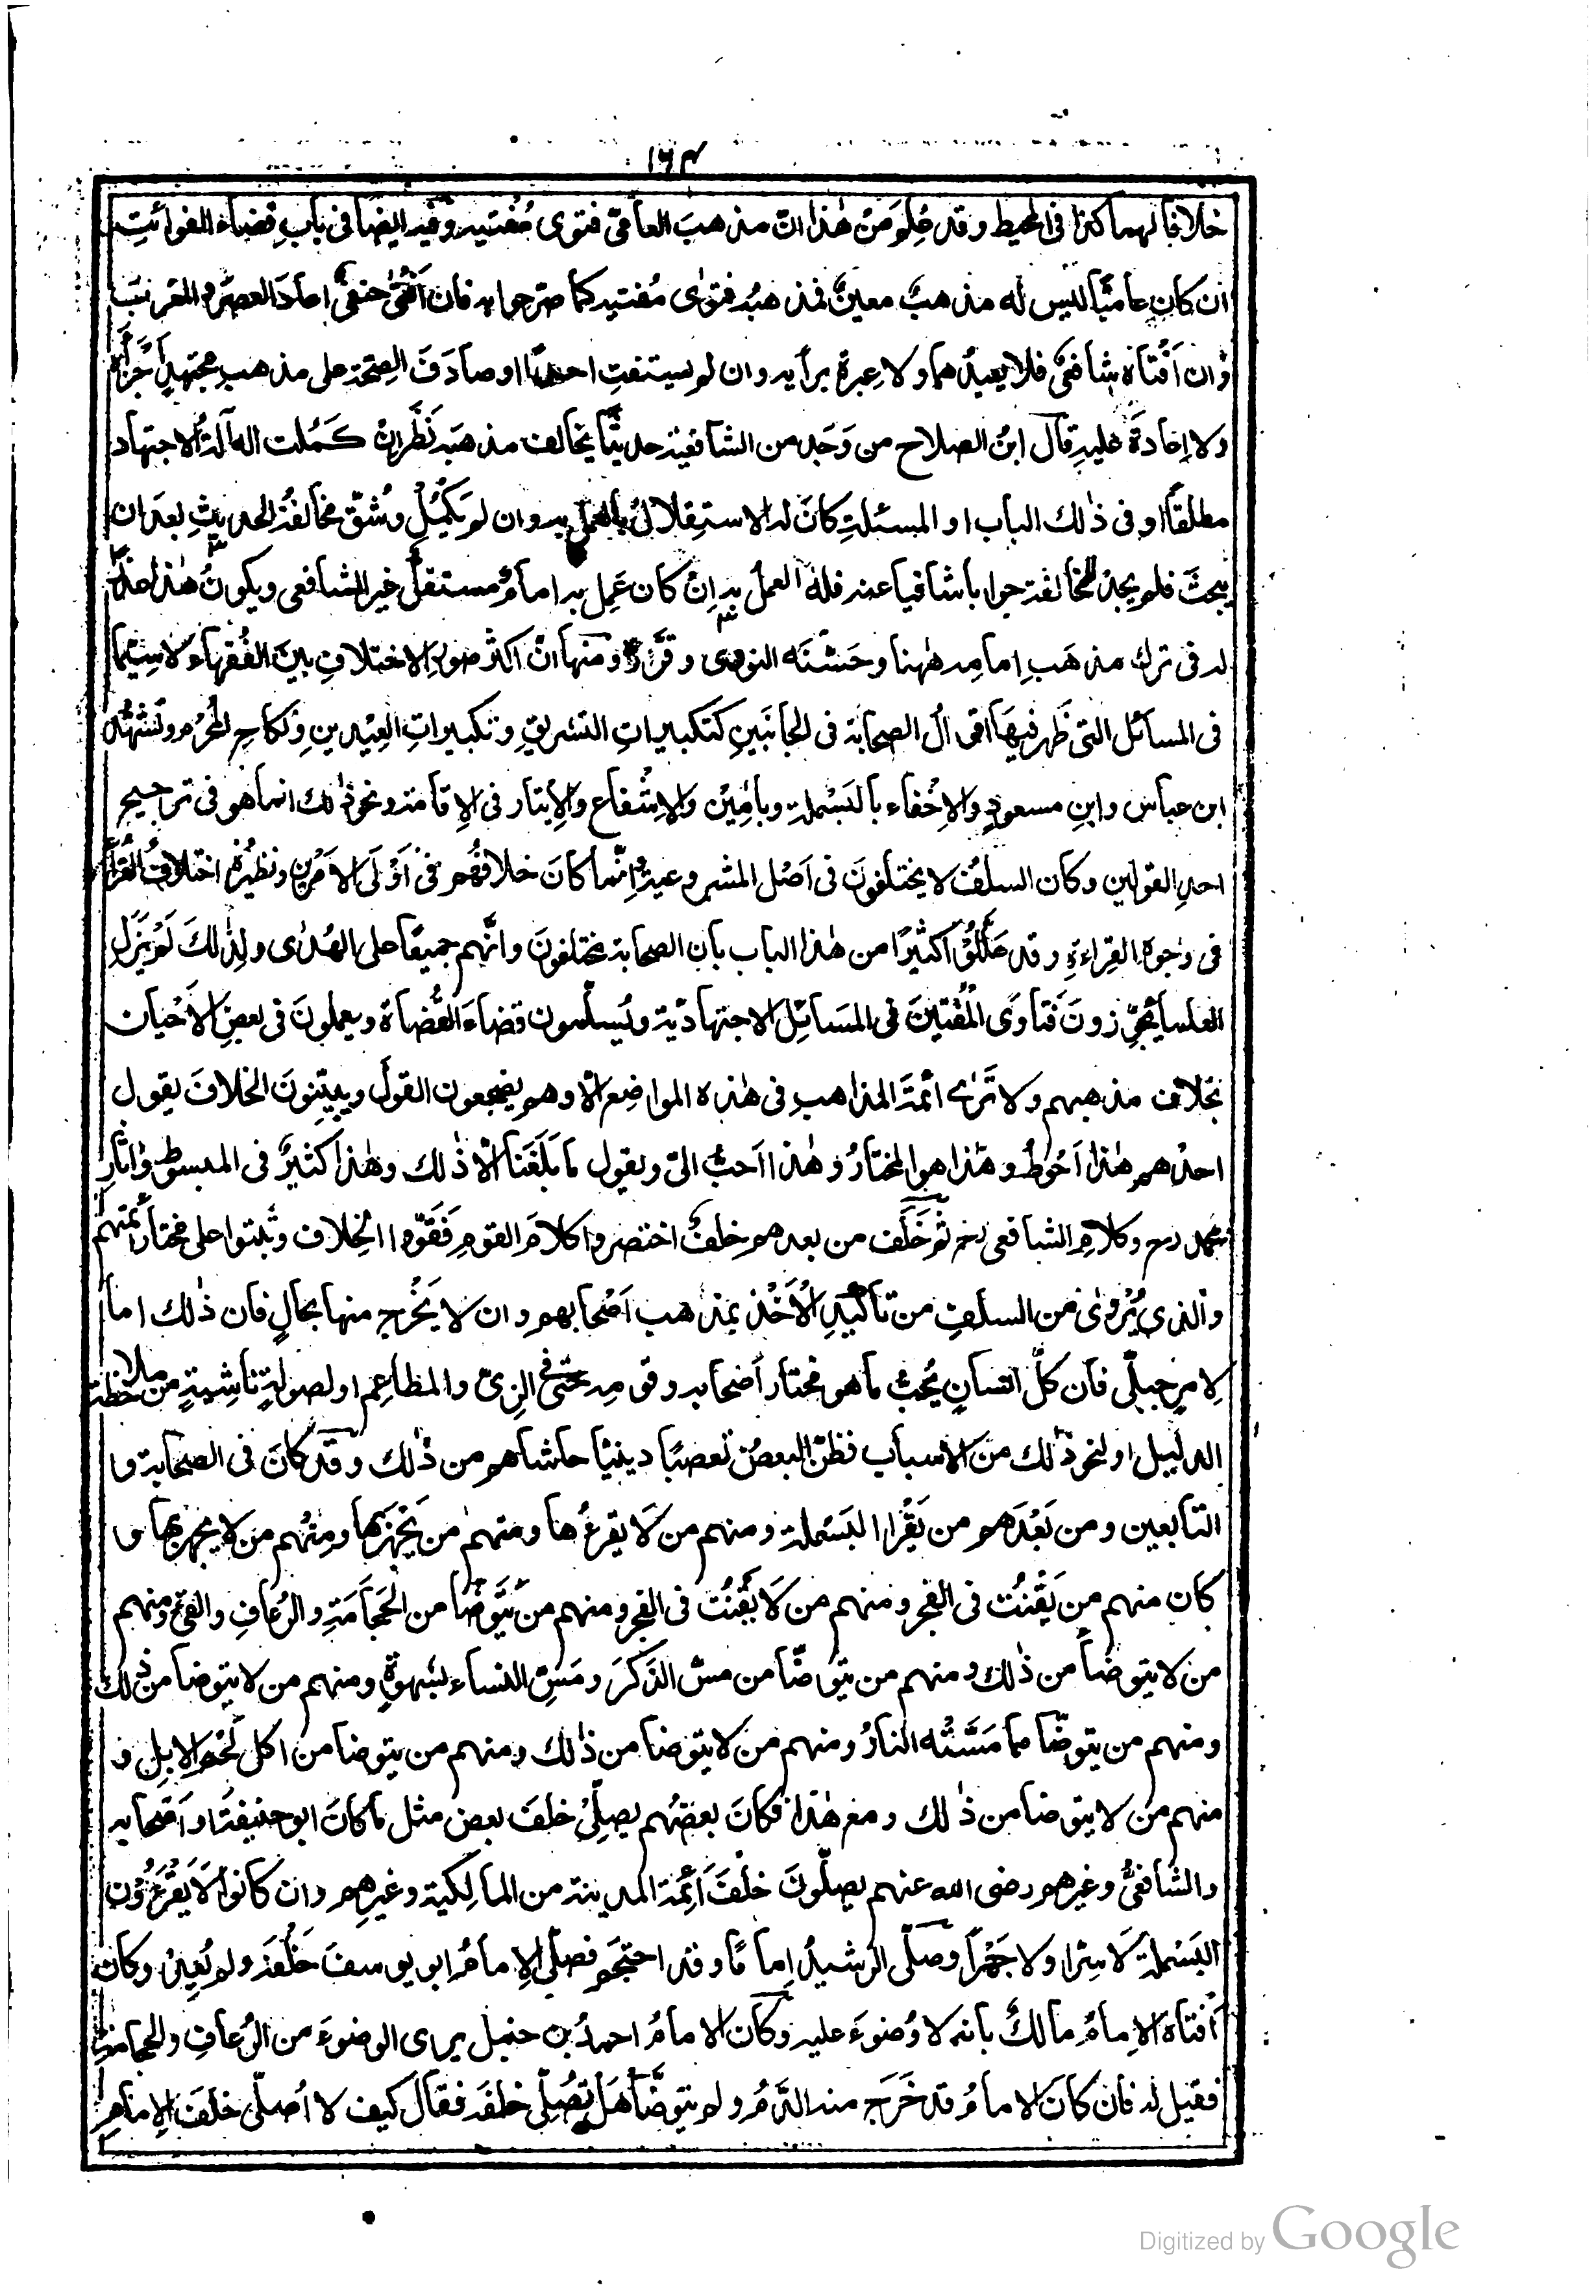 ١٦٣
خلافا لهما كذا فى المحيط وقد عُلِمَ مِن هٰذا انّ مذهبَ العامّى فتوى مُفتيه وفيه ايضا فى بابِ قضاء الفوائتِ
ان كان عاميًّا ليس له مذهبٌ معينٌ فمذهبُه فتوٰى مُفتيه كما صرّحوا به فان اَفتٰى حنفىٌّ اعادَ العصرَ والمغربَ
وان اَفْتاه شافعىٌّ فلا يعيدُهما ولا عِبرةَ برأيه وان لم يستفتِ احدًا او صادَفَ الصِحّةَ على مذهبِ مجتهدٍ اَجْزَأه
ولا اِعادَةَ عليهِ قال ابنُ الصلاح من وَجَد من الشافعية حديثًا يخالف مذهبَه نَظَر اِن كَمُلت له آلةُ الاجتهاد
مطلقًا او فى ذٰلك الباب او المسئلةِ كانَ له الاستِقلالُ بالعمل به وان لم يَكْمُلْ وشُقّ مخالفةُ الحديثِ بعد ان
يبحثَ فلم يجدْ لمخالفته جوابا شافيا عنه فله العملُ به اِنْ كان عَمِل به امامٌ مستقلٌّ غير الشافعى ويكونُ هٰذا عذرًا
له فى ترك مذهَبِ اِمامِه هٰهنا وحَسّنَه النووى وقَرَّره ومنها انّ اكثرَ صورِ الاختلافِ بينَ الفُقهاء لا سِيّما
فى المسائل التى ظَهر فيها اقوالُ الصحابة فى الجانبَينِ كتَكبيراتِ التشريقِ وتكبيراتِ العِيدينِ ونكاحِ المُحْرِم وتشهُّدِ
ابن عباس وابنِ مسعودٍ والاِخْفاء بالبَسْملةِ وبآمِيْن والاِشْفاع والاِيتار فى الاِقامة ونحو ذٰلك انما هو فى ترجيحِ
احدِ القولين وكان السلفُ لا يختلفونَ فى اَصْل المشروعيةِ وانّما كانَ خلافُهُم فى اَوْلَى الاَمْرينِ ونظيرُه اختلافُ القُرَّاء
فى وُجوهِ القِراءةِ وقد عَلَّلُوْا كثيرًا من هٰذا الباب بان الصحابة مختلفونَ وانّهم جميعًا على الهُدٰى ولِذٰلكَ لم يَزَلِ
العلماء يُجوِّزونَ فَتاوَى المُفْتِينَ فى المسَائِلِ الاجتهادّية ويُسلّمون قضاءَ القُضاة ويعملونَ فى بعضِ الاَحْيان
بخلاف مذهبهم ولا تَرٰى ائمّةَ المذاهبِ فى هٰذه المواضِع الّا وهم يضجعون القولَ ويبيّنونَ الخلافَ يقول
احدُهم هٰذا اَحْوَطُ وهٰذا هو المختارُ وهٰذا احبُّ الىّ ويقول ما بَلَغَنا الّا ذٰلك وهٰذا كثيرٌ فى المبسوط واٰثارِ
محمد رح وكلامِ الشافعى رح ثم خَلَف من بعدهم خلفٌ اختصروا كلامَ القومِ فَقَوَّوا الخِلاف وثَبتوا على مختار اَئمتهم
والذى يُرْوٰى من السلفِ من تاكيدِ الاَخْذ بمذهب اَصْحابهم وان لا يَخْرُج منها بحالٍ فان ذٰلك امّا
لِامرٍ جبلّى فان كلَّ انسانٍ يُحِبُّ ما هو مختار اَصْحابه وقومِه حتٰى فى الزِىّ والمطاعِم او لصولةٍ ناشِيةٍ من ملاحظة
الدليل او لنحو ذٰلك من الاسباب فظنّ البعضُ تعصّبًا دينيًّا حاشاهم من ذٰلك وقد كانَ فى الصحابة و
التابعين ومن بَعْدَهم من يَقْرأ البَسْملةَ ومنهم من لَا يقرءُها ومنهم من يَجْهَر بها ومِنْهم من لا يجهرُ بها و
كان منهم من يَقْنُت فى الفجر ومنهم من لَا يَقْنُت فى الفجر ومنهم من يَتَوضّأ من الحَجَامَةِ والرُعافِ والقئ ومنهم
من لا يتوضأ من ذٰلك ومنهم من يتوضّأ من مسّ الذَكرَ ومَسّ النساء بشهوةٍ ومنهم من لا يتوضأ من ذٰلك
ومنهم من يتوضّأ مما مَسَّتْه النارُ ومنهم من لا يتوضأ من ذٰلك ومنهم من يتوضأ من اكل لَحْمِ الابِلِ و
منهم مَن لا يتوضأ من ذٰلك ومع هٰذا فكانَ بعضُهم يصلِّىْ خلفَ بعض مثل ما كانَ ابو حنيفةَ او اَصْحابه
والشافعىُّ وغيرهم رضى الله عنهم يصلّونَ خلْفَ اَئِمّة المدينة من المالِكيّة وغيرِهم وان كانوا لَا يَقْرَءُوْن
البَسْملةَ لَا سِرًّا ولا جَهْرًا وصلّى الرشيدُ اِمامًا وقد احتجَم فصلّى الاِمامُ ابو يوسفَ خَلْفَه ولم يُعِدْ وكان
اَفتاه الاِمامُ مالكٌ بانه لا وُضوءَ عليه وكان الامامُ احمدُ بن حنبل يرى الوضوءَ من الرُعافِ والحجامةِ
فقيل له فان كانَ الامامُ قد خَرَج منه الدَّمُ ولم يتوضّأ هَلْ تُصلّى خلفَه فقال كيف لا اُصلّى خلفَ الاِمامِ
Digitized by Google